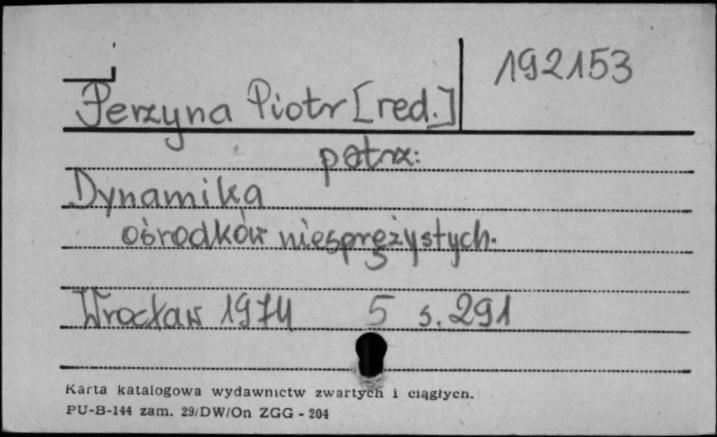 192153
Perzyna Piotr [red.]
patrz:
Dynamika
ośrodków niesprężystych.
Wrocław 1974 5 s. 291
Karta katalogowa wydawnictw zwartych i ciągłych.
PU-B-144 zam. 29/DW/On ZGG - 204